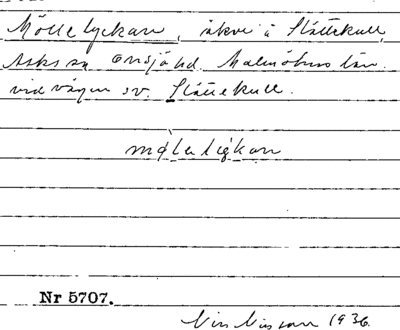 Möllelyckan, åker å Slättekull,
Asks sn Onsjö hd. Malmöhus län.
vid vägen sv. Slättekull.
mølelykan
Nr 5707.
Nils Nilsson 1936.